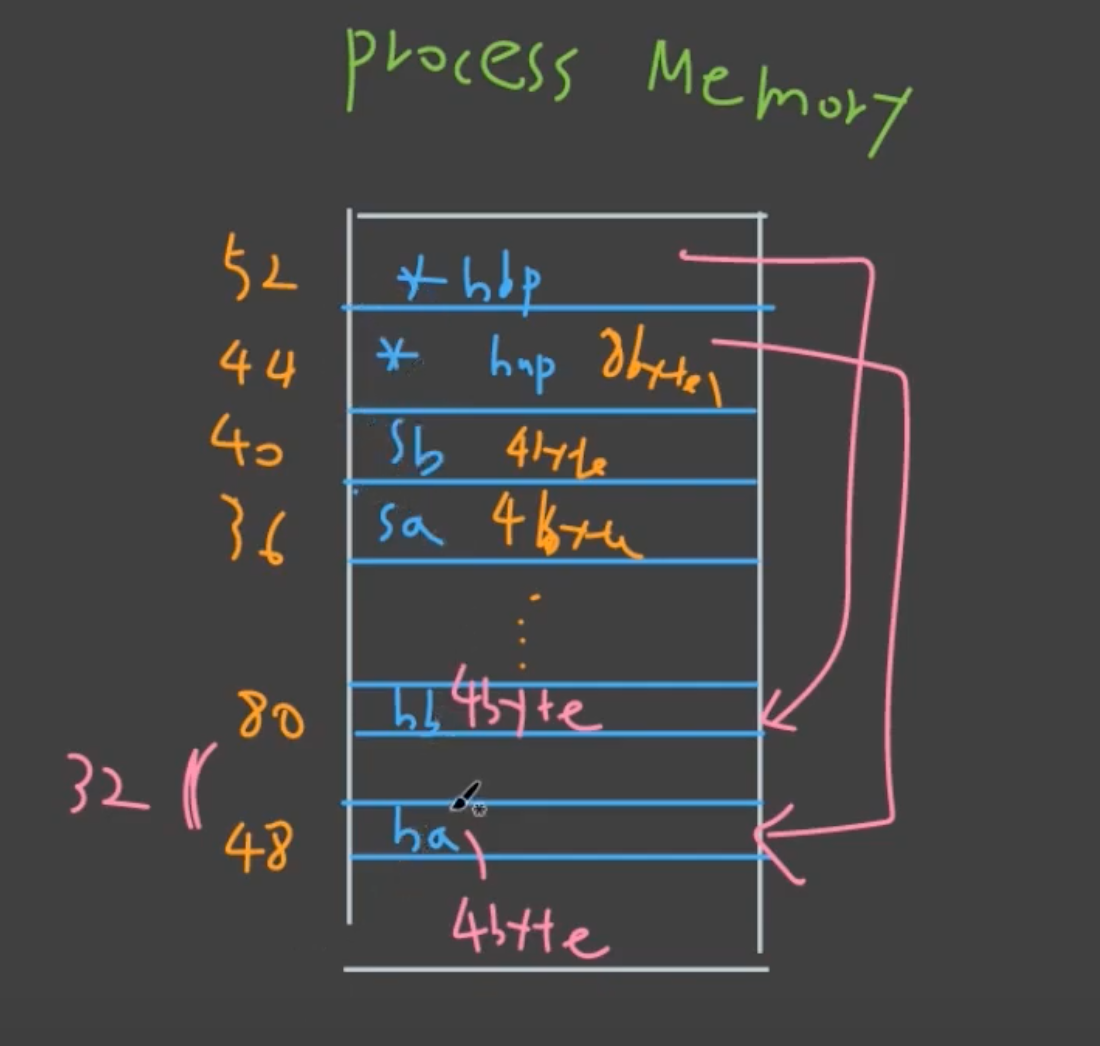 process Memory
52 *hbp
44 * hap 8byte
40 sb 4byte
36 sa 4byte
80 hb 4byte
32
48 ha
4byte